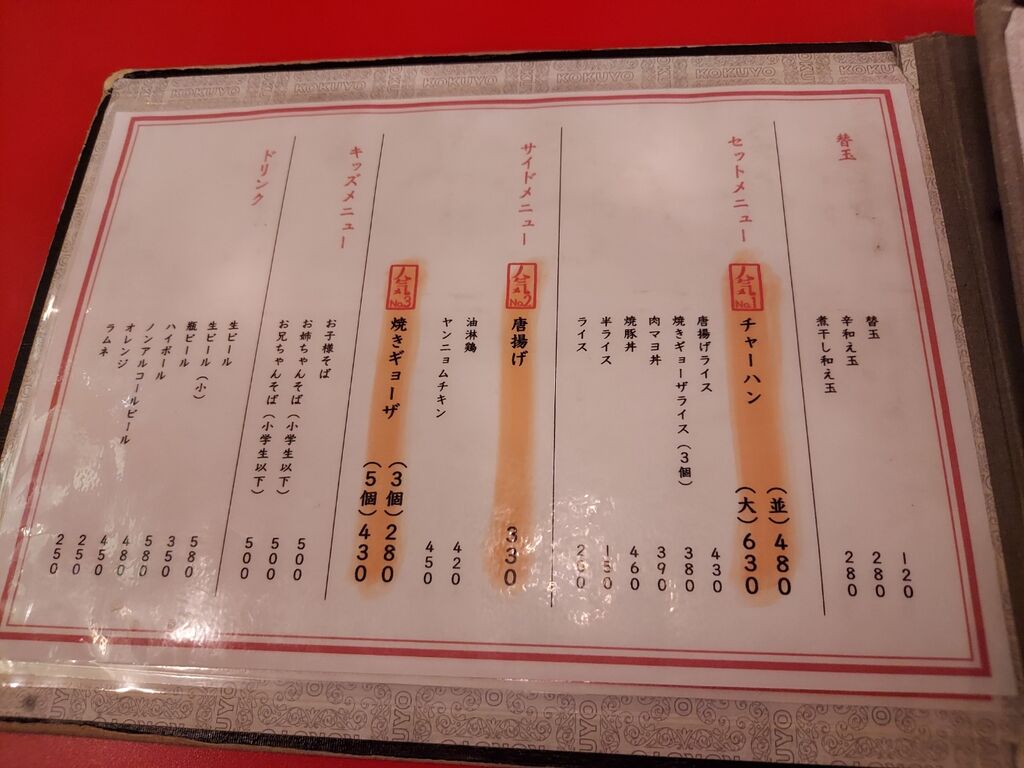 替玉
替玉 120
辛和え玉 280
煮干し和え玉 280
セットメニュー
人気No.1 チャーハン (並)480
(大)630
唐揚げライス 430
焼きギョーザライス(3個) 380
肉マヨ丼 390
焼豚丼 460
半ライス 150
ライス
サイドメニュー
人気No.2 唐揚げ 330
油淋鶏 420
ヤンニョムチキン 450
人気No.3 焼きギョーザ (3個)280
(5個)430
キッズメニュー
お子様そば 500
お姉ちゃんそば(小学生以下) 500
お兄ちゃんそば(小学生以下) 500
ドリンク
生ビール 580
生ビール(小) 350
瓶ビール 580
ハイボール 480
ノンアルコールビール 450
オレンジ 250
ラムネ 250
KOKUYO